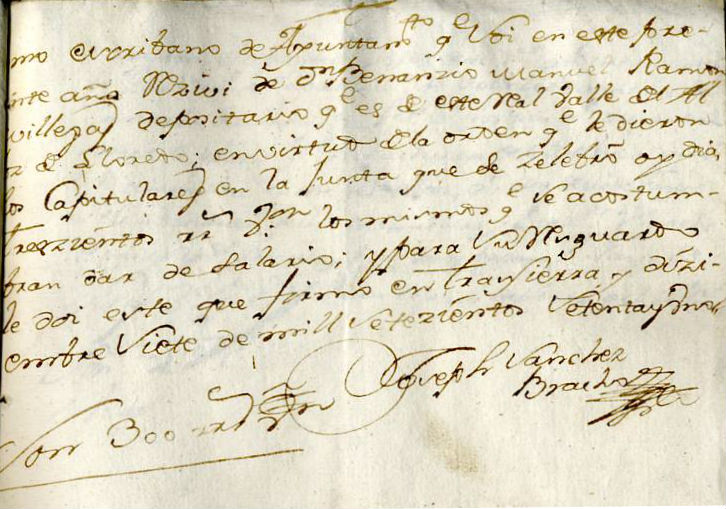 mo escribano de Ayuntamto qe soi en este pre-
sente año Rezivi de Dn Benanzio Manuel Ramon
villegas depositario qe es de este Ral Valle de Al
oz de Lloredo; en virtud de la orden qe le dieron
los Capitulares en la Junta que se zelebro oy dia,
Treszientos rrs Von los mismos qe se acostum-
bran dar de salario; y para su Resguardo
le doi este que firmo en Trasierra y dizi-
embre siete de mill setezientos setenta y
Joseph Sanchez
Bracho
Son 300 rrs Von